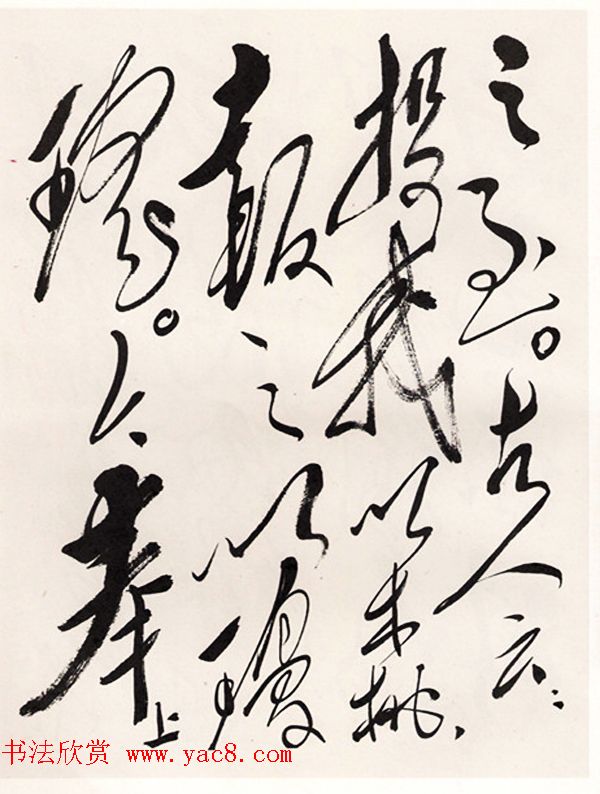 之至。古人云：
投我以木桃，
報之以瓊
瑤。今奉上
书法欣赏 www.yac8.com